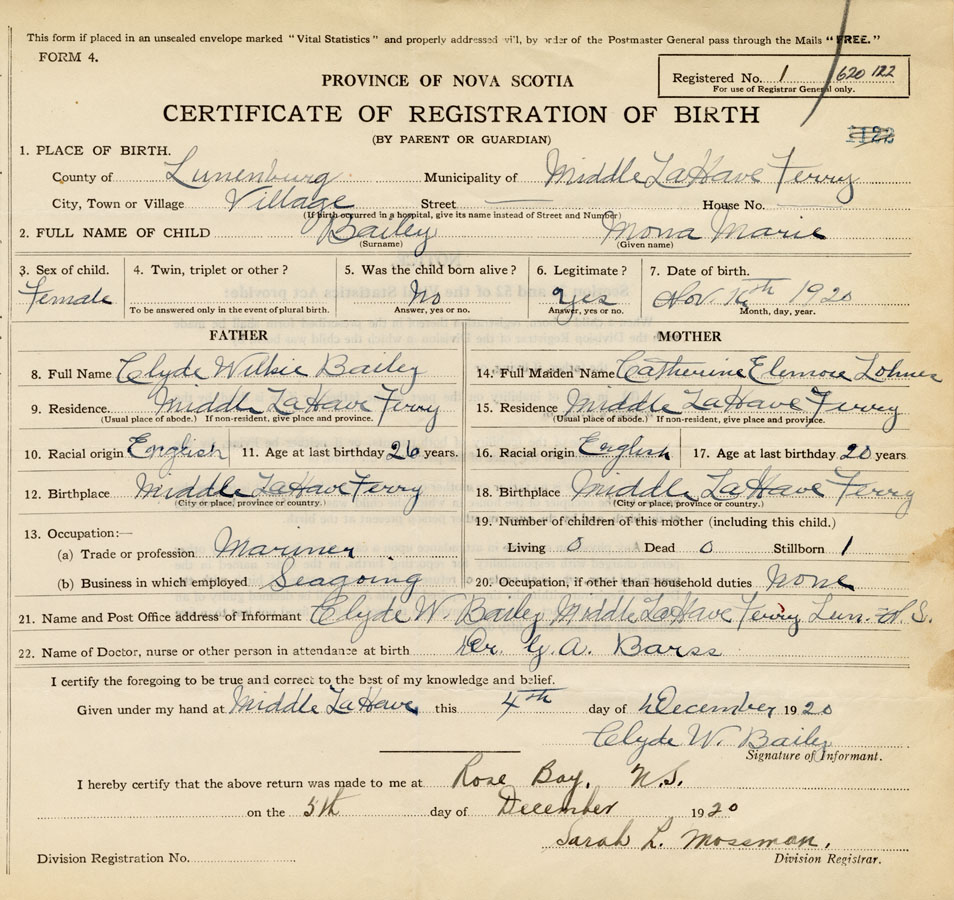 This form if placed in an unsealed envelope marked "Vital Statistics" and properly addressed will, by order of the Postmaster General pass through the Mails "FREE."
FORM 4.
Registered No. 1 620 122
For use of Registrar General only.
PROVINCE OF NOVA SCOTIA
CERTIFICATE OF REGISTRATION OF BIRTH
(BY PARENT OR GUARDIAN)
1. PLACE OF BIRTH.
County of Lunenburg Municipality of Middle LaHave Ferry
City, Town or Village Village Street — House No. —
(If birth occurred in a hospital, give its name instead of Street and Number)
2. FULL NAME OF CHILD Bailey Mona Marie
(Surname) (Given name)
3. Sex of child. 4. Twin, triplet or other? 5. Was the child born alive? 6. Legitimate? 7. Date of birth.
Female No Yes Nov. 1920
To be answered only in the event of plural birth. Answer, yes or no. Answer, yes or no. Month, day, year.
FATHER MOTHER
8. Full Name Clyde Wilkie Bailey 14. Full Maiden Name Catherine Elenore Lohnes
9. Residence. Middle LaHave Ferry 15. Residence Middle LaHave Ferry
(Usual place of abode.) If non-resident, give place and province. (Usual place of abode.) If non-resident, give place and province.
10. Racial origin English 11. Age at last birthday 26 years. 16. Racial origin English 17. Age at last birthday 20 years
12. Birthplace Middle LaHave Ferry 18. Birthplace Middle LaHave Ferry
(City or place, province or country.) (City or place, province or country.)
19. Number of children of this mother (including this child.)
13. Occupation:—
(a) Trade or profession Mariner Living 0 Dead 0 Stillborn 1
(b) Business in which employed Seagoing 20. Occupation, if other than household duties None
21. Name and Post Office address of Informant Clyde W. Bailey Middle LaHave Ferry Lun. N.S.
22. Name of Doctor, nurse or other person in attendance at birth Dr. G. A. Barss
I certify the foregoing to be true and correct to the best of my knowledge and belief.
Given under my hand at Middle LaHave this 4th day of December 1920
Clyde W. Bailey
Signature of Informant.
I hereby certify that the above return was made to me at Rose Bay, N.S.
on the 5th day of December 1920
Sarah L. Mossman.
Division Registrar.
Division Registration No.